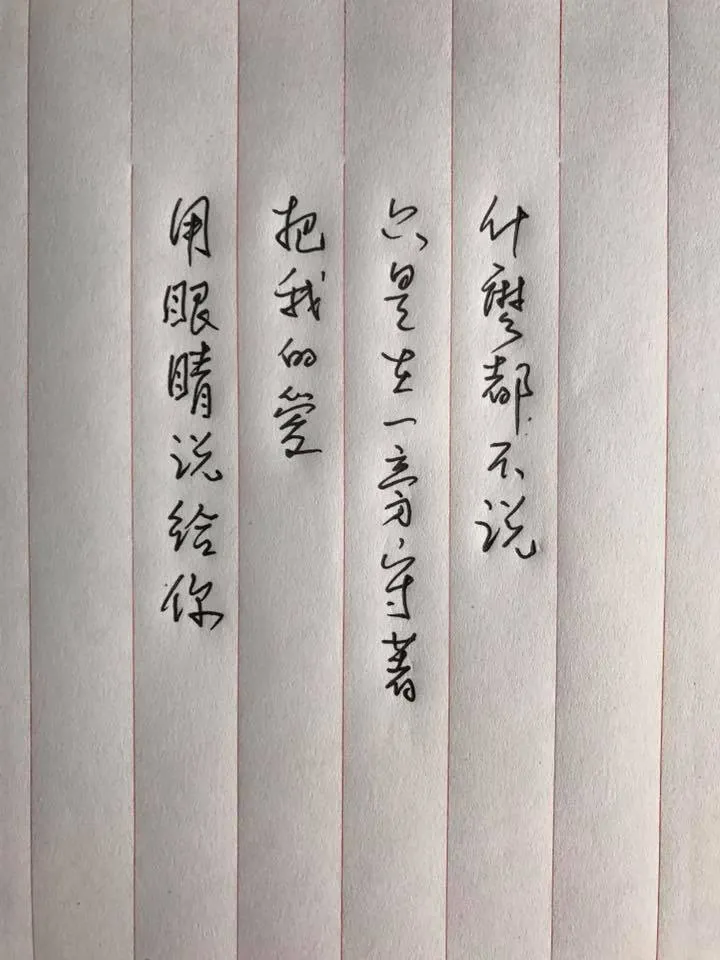 什麼都不说
只是在一旁守著
把我的愛
用眼睛说给你